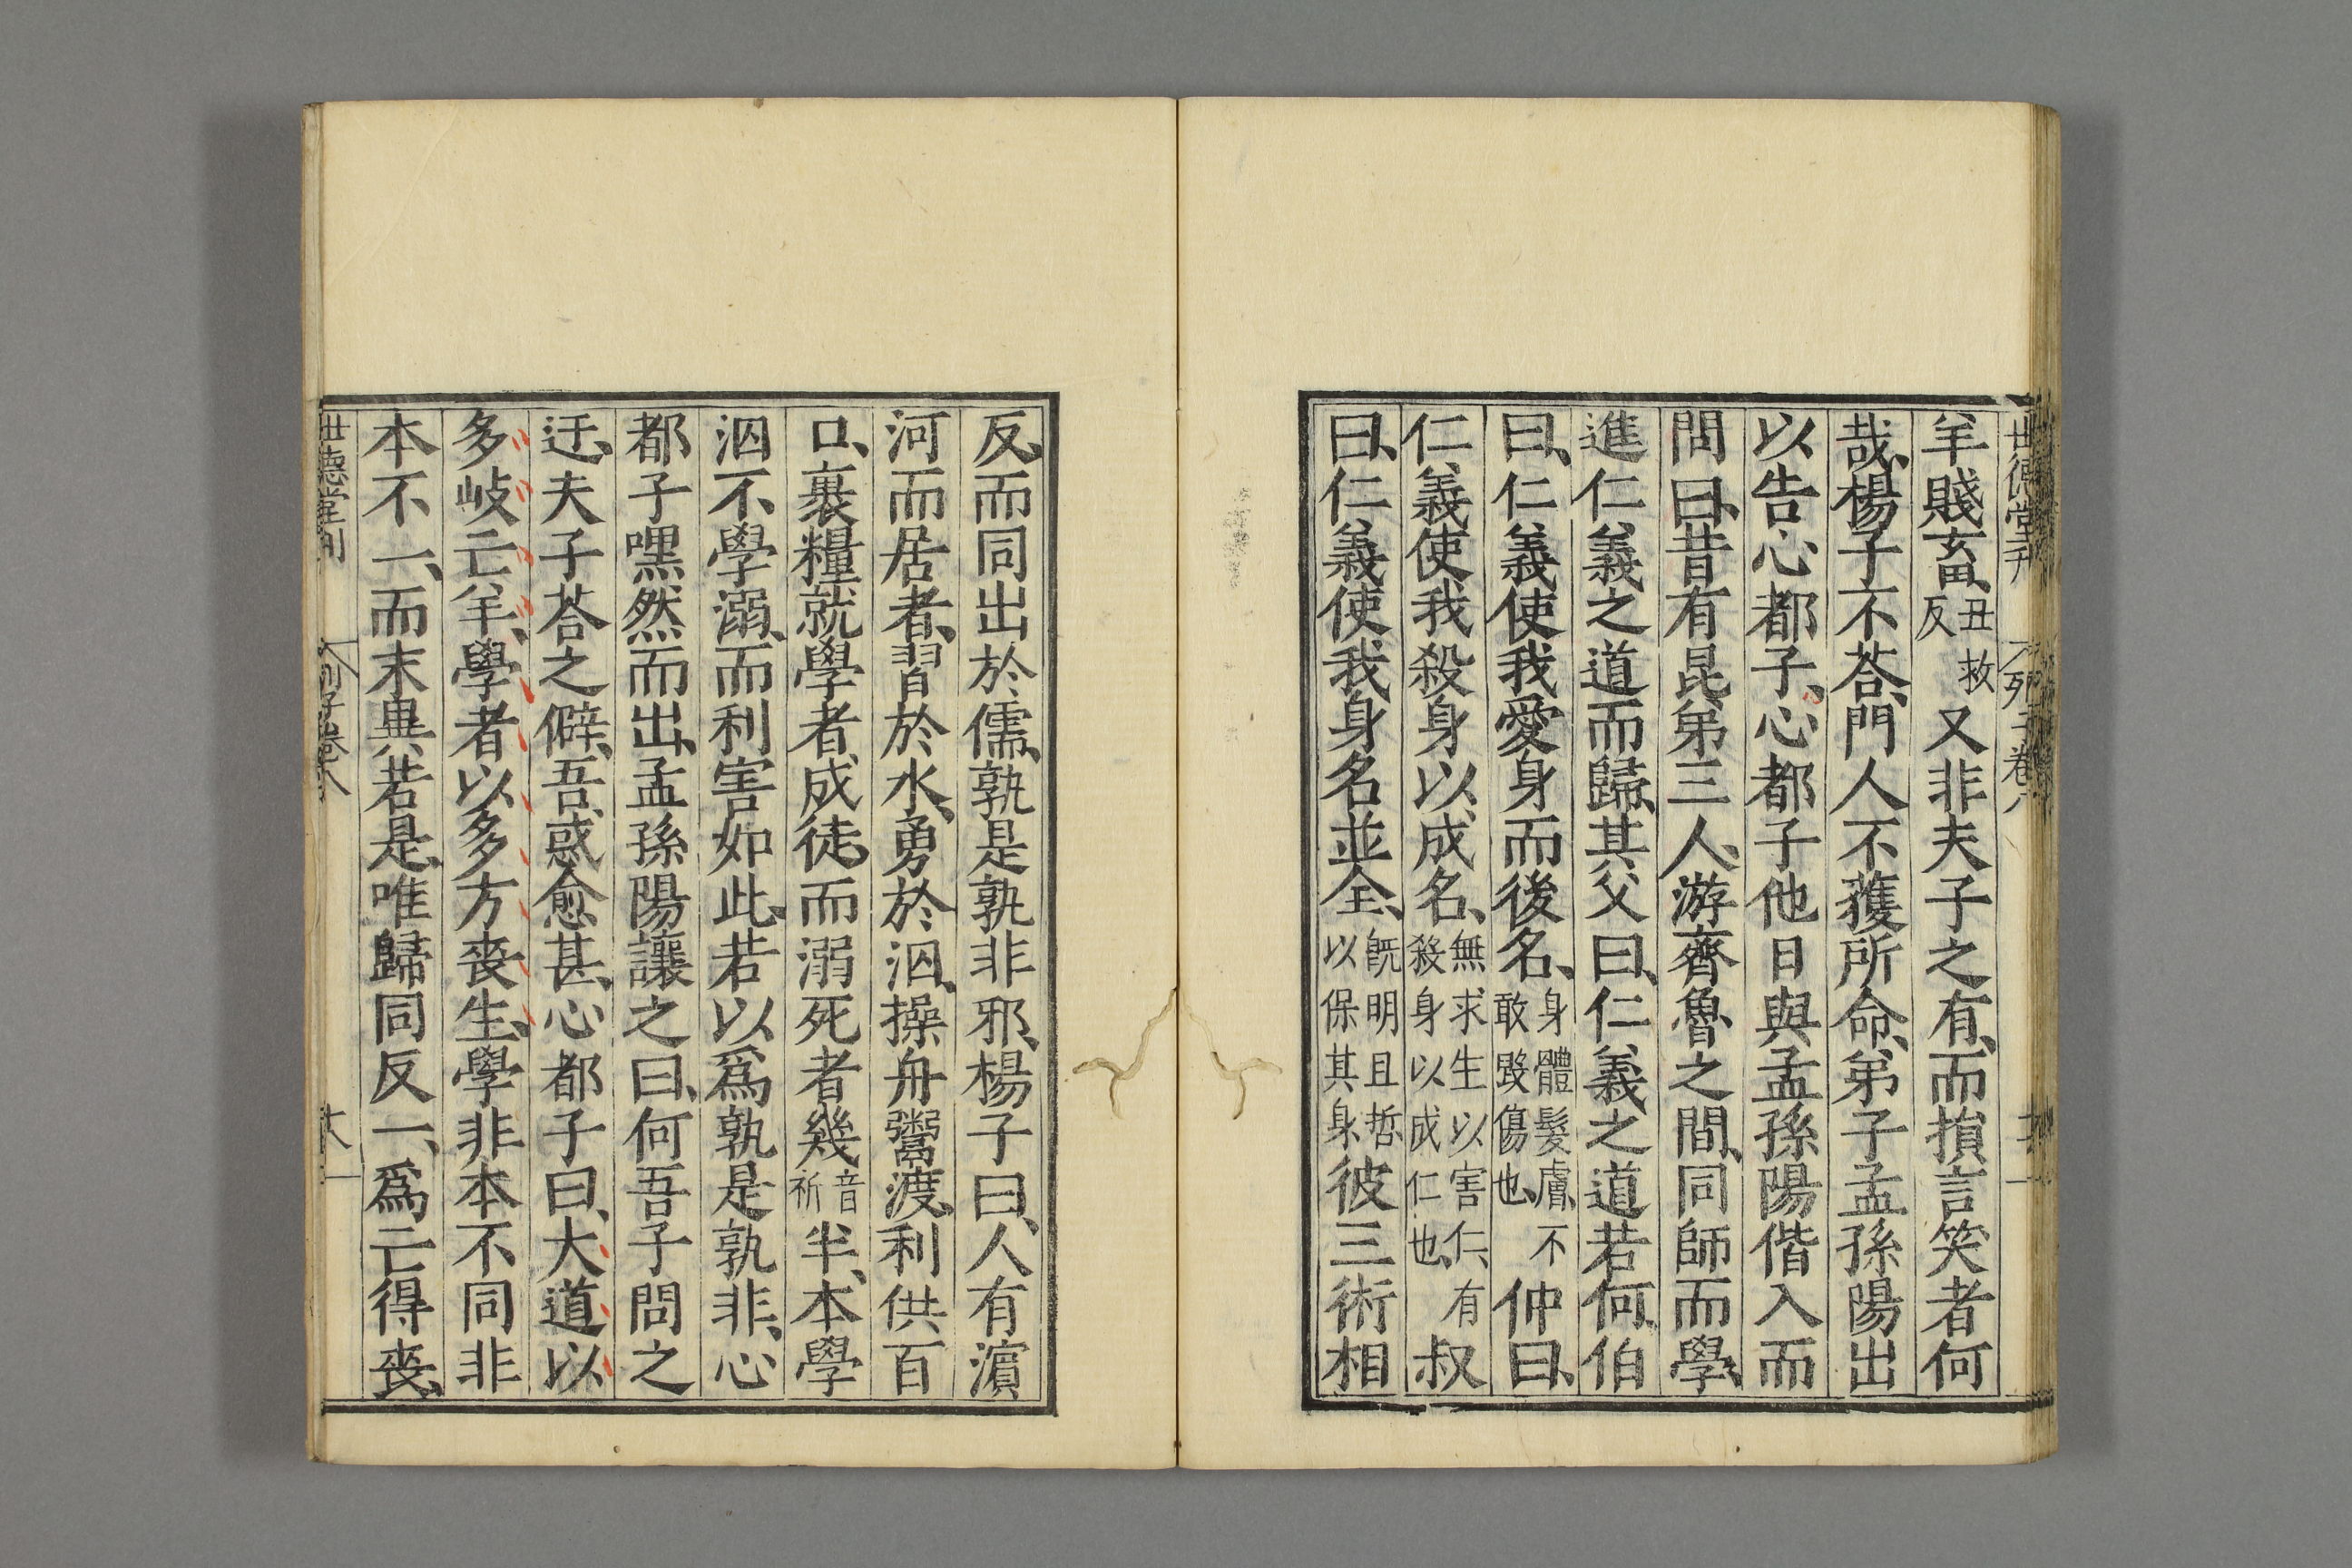 世德堂刊
列子卷八
羊賤畜、丑救反又非夫子之有、而損言笑者何
哉、楊子不荅、門人不獲所命、弟子孟孫陽出
以告心都子、心都子他日與孟孫陽偕入而
問曰、昔有昆弟三人、游齊魯之間、同師而學、
進仁義之道而歸、其父曰、仁義之道若何、伯
曰、仁義使我愛身而後名、身體髮膚、不敢毀傷也、仲曰、
仁義使我殺身以成名、無求生以害仁、有殺身以成仁也、叔
曰、仁義使我身名並全、旣明且哲、以保其身、彼三術相
反、而同出於儒、孰是孰非邪、楊子曰、人有濵
河而居者、習於水、勇於泅、操舟鬻渡、利供百
口、裹糧就學者、成徒、而溺死者幾音祈半、本學
泅不學溺、而利害如此、若以爲孰是孰非、心
都子嘿然而出、孟孫陽讓之曰、何吾子問之
迂、夫子荅之僻、吾惑愈甚、心都子曰、大道以
多岐亡羊、學者以多方喪生、學非本不同非
本不一、而末異若是、唯歸同反一、爲亡得喪、
世德堂刊
列子卷八
十八